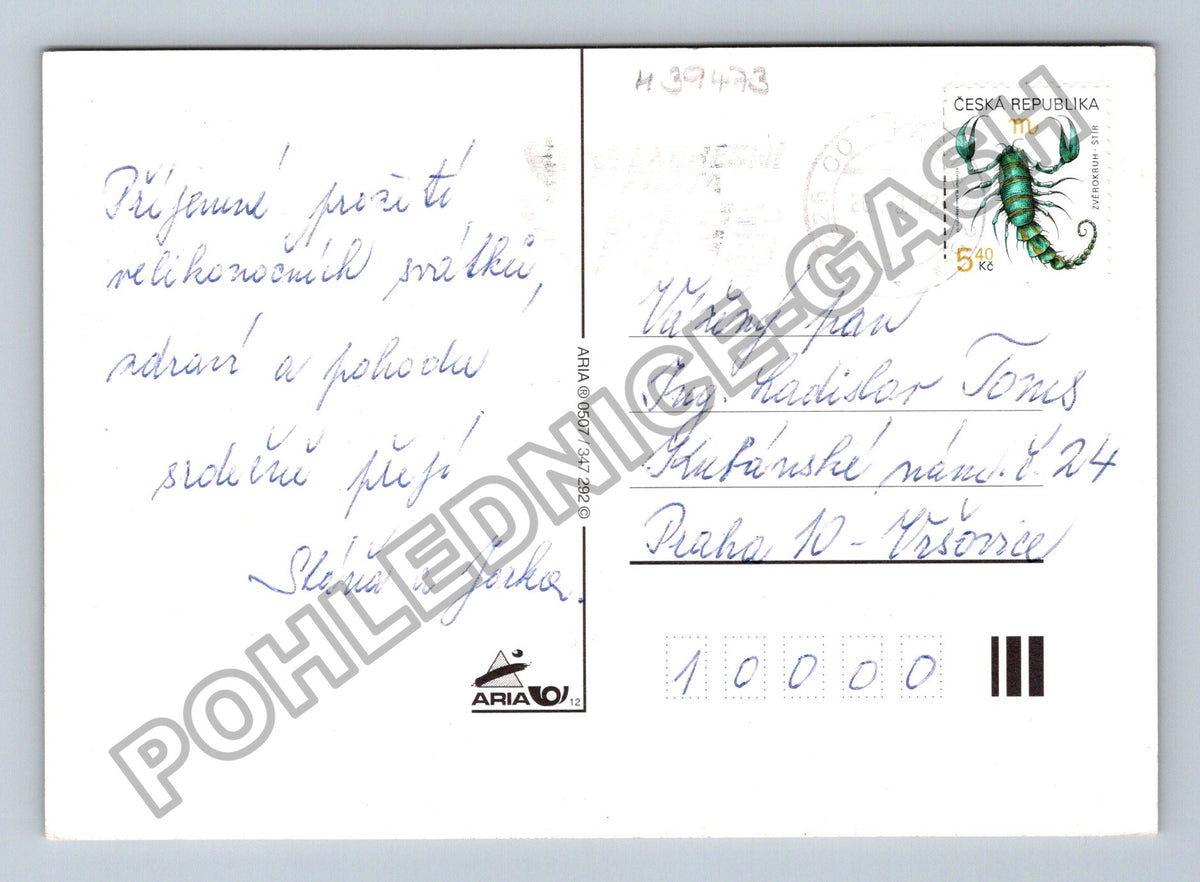 Příjemné prožití
velikonočních svátků,
zdraví a pohodu
srdečně přejí
a Jorka.
ARIA ® 0507 / 347 292 ©
ARIA 12
H 39473
ČESKÁ REPUBLIKA
ZVĚROKRUH - ŠTÍR
5 40 Kč
Vážený pan
Ing. Ladislav Toms
Kubánské nám. č. 24
Praha 10 - Vršovice
1 0 0 0 0
POHLEDNICE-GASH